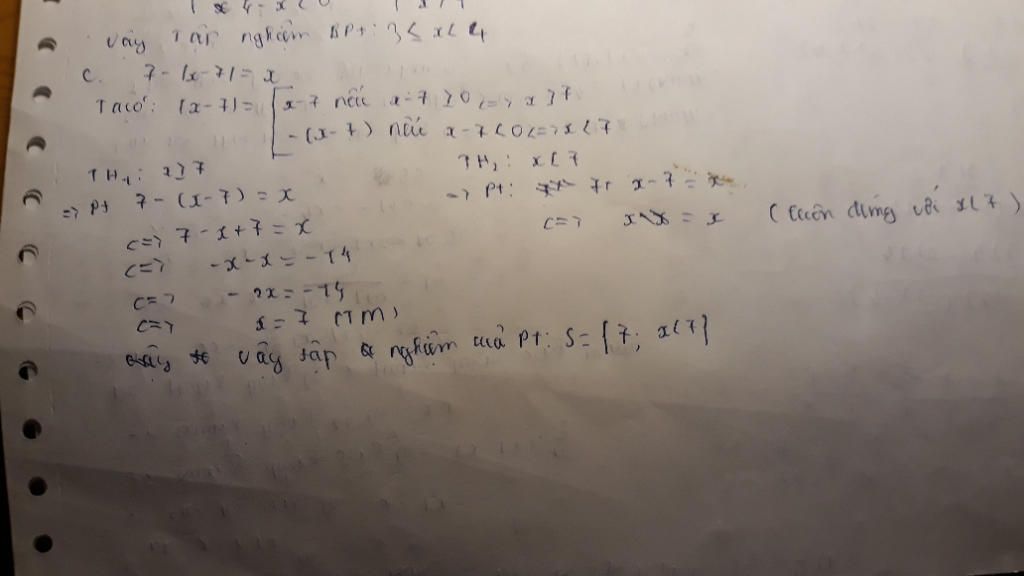 x < 0
Vậy Tập nghiệm BPt: 3 ≤ x < 4
c. 7 - |x-7| = x
Ta có: |x-7| = [ x-7 nếu x-7 ≥ 0 <=> x ≥ 7
-(x-7) nếu x-7 < 0 <=> x < 7
TH1: x ≥ 7
=> Pt 7 - (x-7) = x
<=> 7 - x + 7 = x
<=> -x - x = -14
<=> -2x = -14
<=> x = 7 (TM)
TH2: x < 7
=> Pt: 7 + x - 7 = x
<=> x = x (luôn đúng với x < 7)
Vậy tập nghiệm của Pt: S = {7; x < 7}